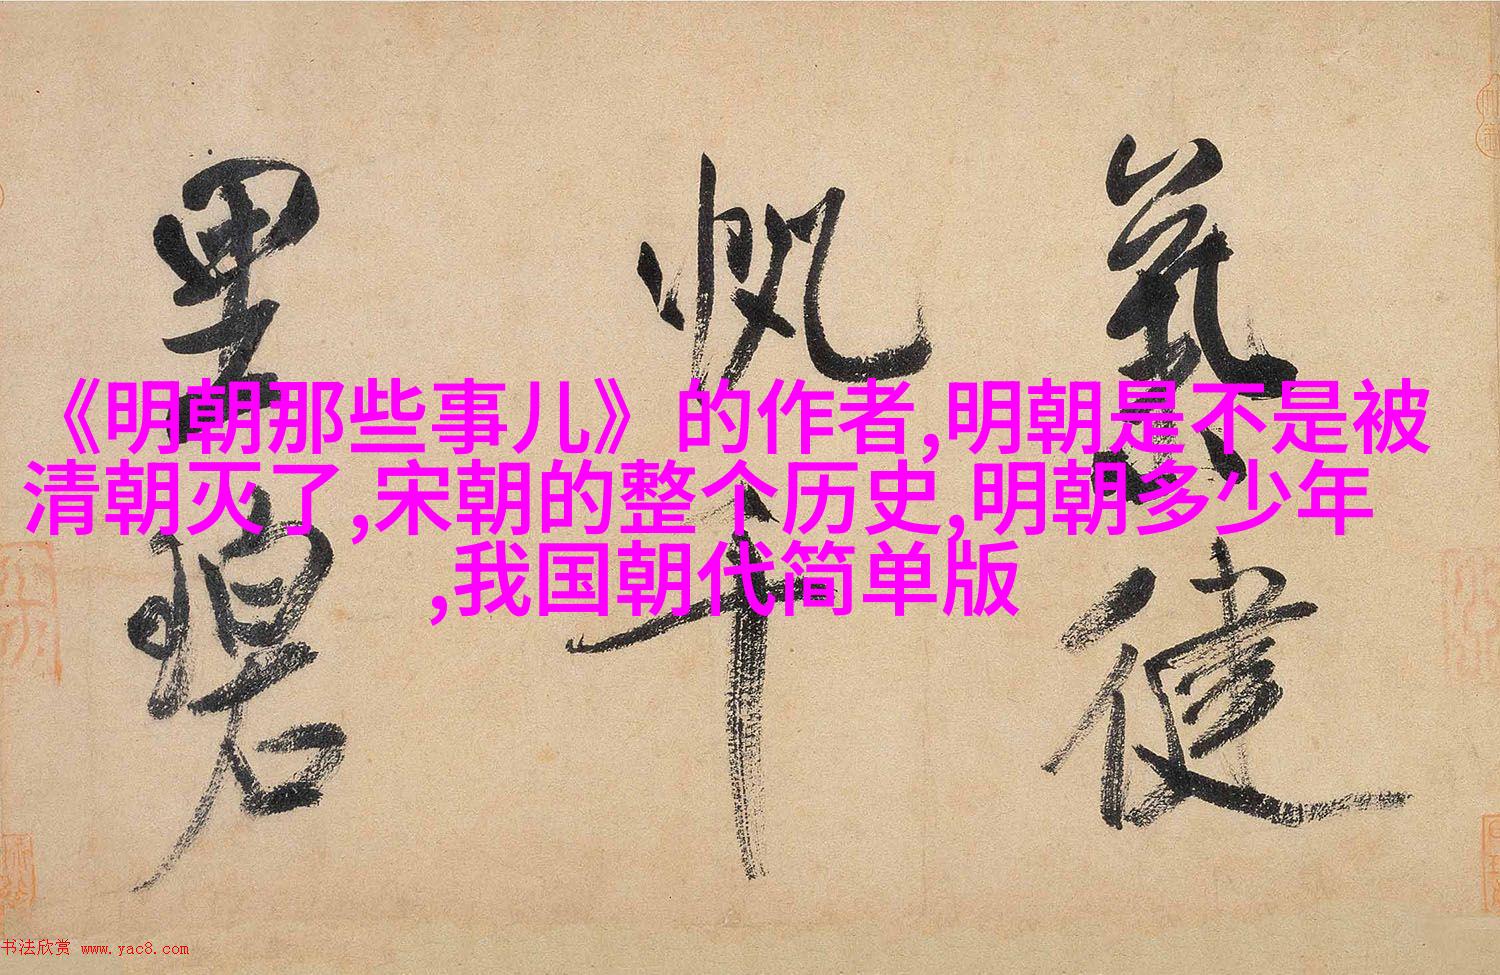 氣健
帆千
里碧
《明朝那些事儿》的作者,明朝是不是被
清朝灭了,宋朝的整个历史,明朝多少年
,我国朝代简单版
书法欣赏 www.yac8.com